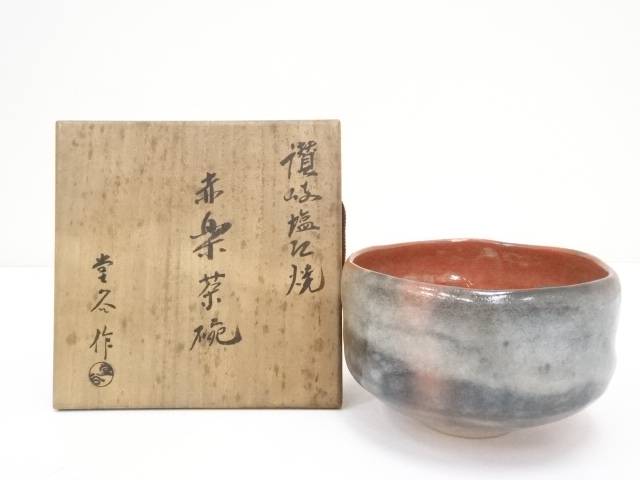 讃岐塩江焼
赤楽茶碗
堂谷作